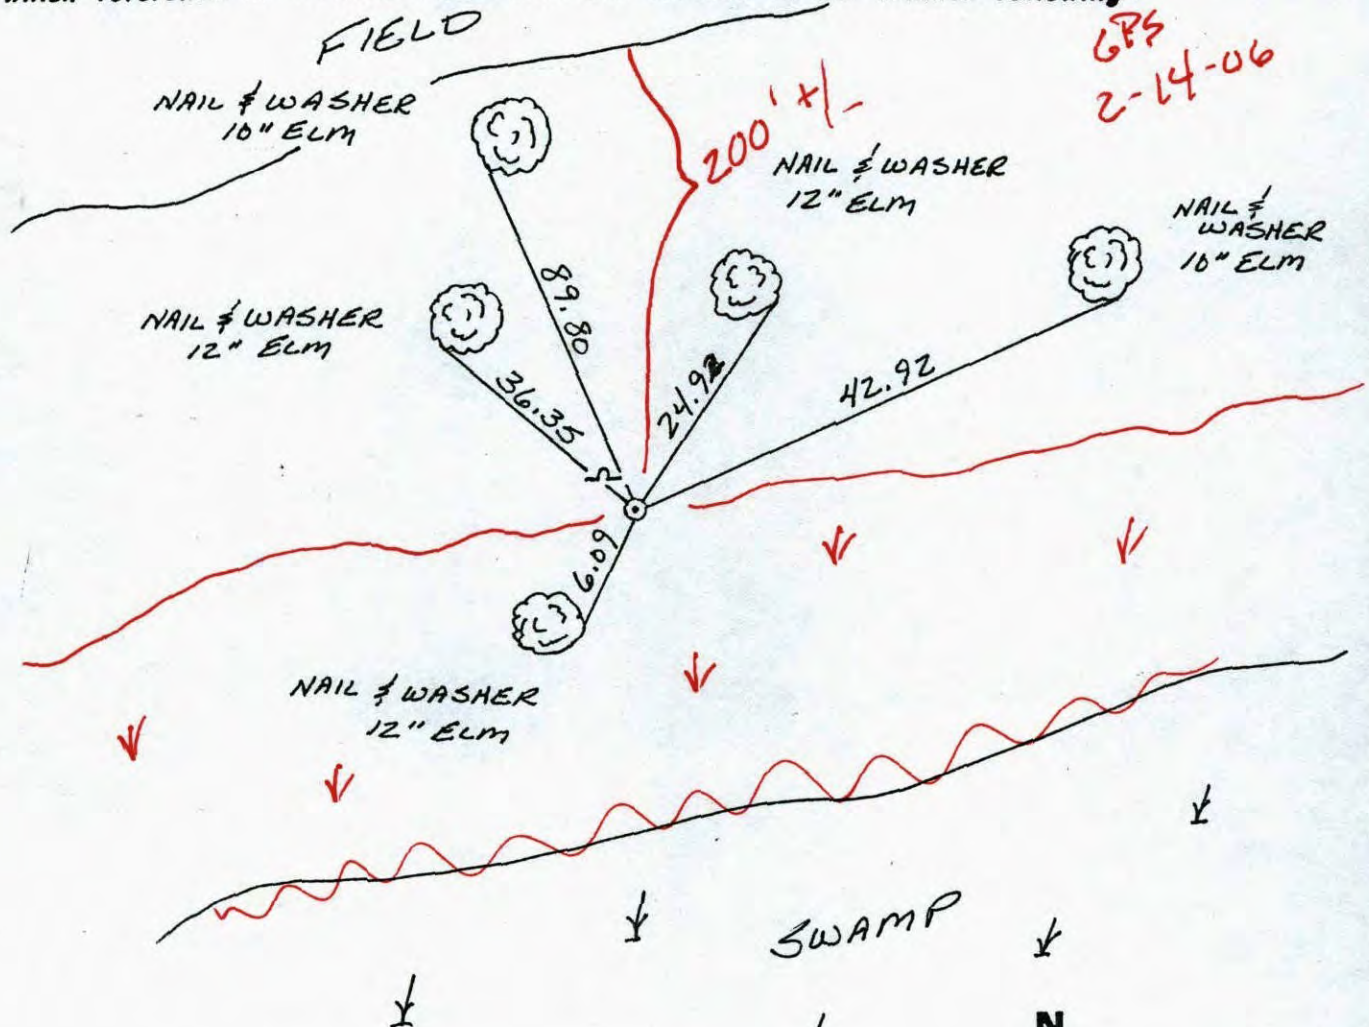 FIELD
GPS
2-14-06
NAIL & WASHER
10" ELM
200' +/-
NAIL & WASHER
12" ELM
NAIL &
WASHER
10" ELM
NAIL & WASHER
12" ELM
89.80
36.35
24.92
42.92
6.09
NAIL & WASHER
12" ELM
SWAMP
N